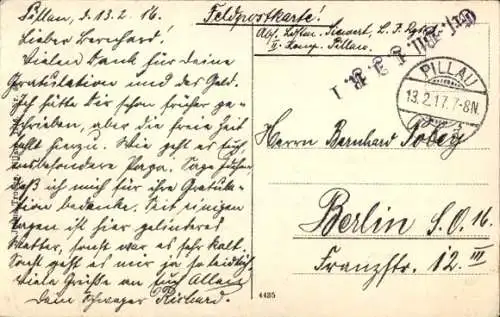 Pillau, d. 13.2.16.
Lieber Bernhard!
Vielen Dank für Deine
Gratulation und das Geld.
Ich hätte dir schon früher ge-
schrieben, aber die freie Zeit
fällt hierzu. Wie geht es Euch,
insbesondere Papa. Sage Ihnen,
daß ich mich für ihre Gratula-
tion bedanke. Seit einigen
Tagen ist hier gelinderes
Wetter, sonst war es sehr kalt.
Sonst geht es mir ja so leidlich.
Viele Grüße an Euch Allen
Dein Schwager Richard.
Feldpostkarte!
Abs.
II. Komp. Pillau.
PILLAU
13.2.17.7-8N.
Herrn Bernhard Tobey
Berlin S.O. 16.
Franzstr. 12. III
4495